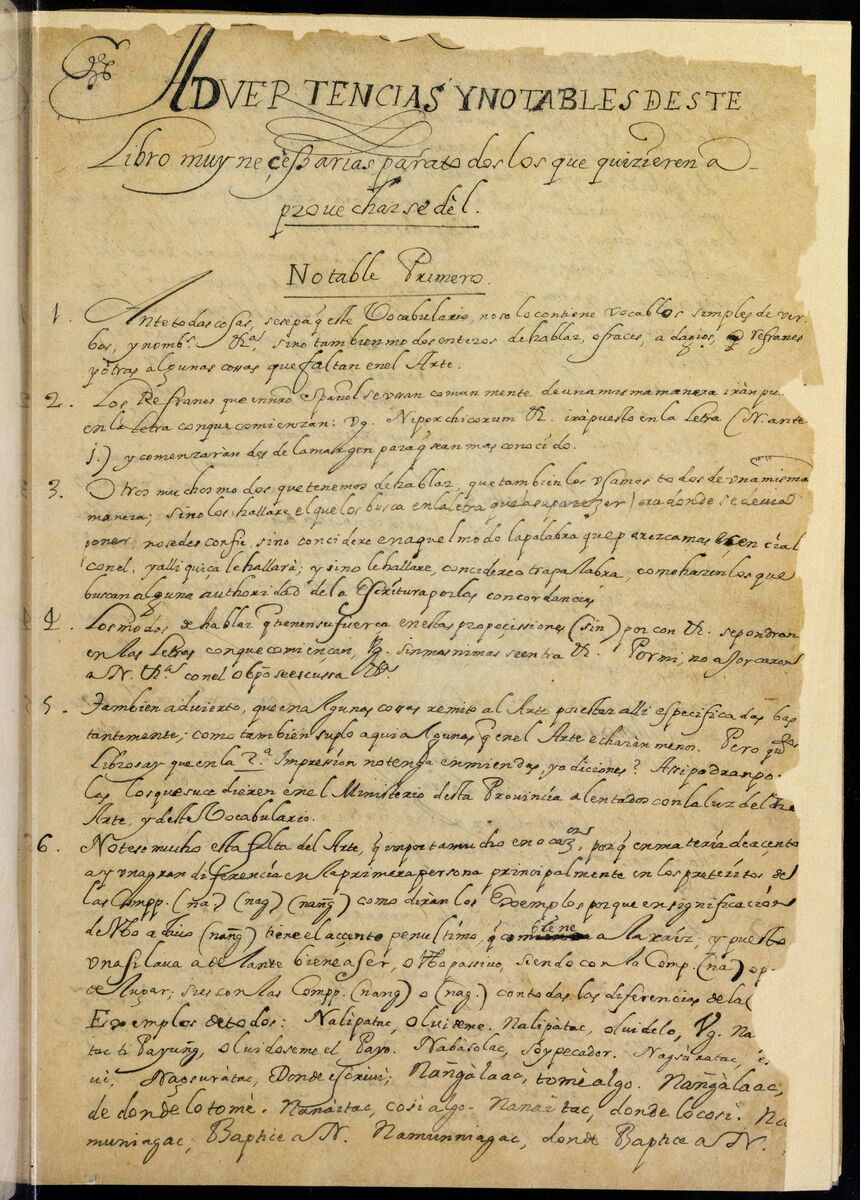 ADVERTENCIAS Y NOTABLES DESTE
Libro muy neçessarias para todos los que quizieren a-
prouecharse dèl.
Notable Primero.
1. Ante todas cosas, se sepa q̃ este Vocabulario, no solo contiene vocablos simples de ver-
bos, y nomb.s &.as, sino tambien modos enteros de hablar, o fraces, adagios, refranes
y otras algunas cosas que faltan en el Arte.
2. Los Refranes que en nr̃o Español se vsan comunmente de una misma manera iràn pu
en la Letra con que comienzan: Vg. Ni por chicorum &. irà puesto en la Letra (N. ante
j.) y comenzaran desde la margen para q̃ sean mas conocido.
3. Otros muchos modos que tenemos de hablar, que tambien los vsamos todos de vna misma
manera; si no los hallare el que los busca en la letra que a su parezer era donde se deuia
poner, no se desconfie, sino concidere en aquel modo la palabra que parezca mas essencial
con el, y alli quiça le hallarà; y si no le hallare, concidere otra palabra, como hazen los que
buscan alguna authoridad de la Escritura por las concordancias
4. Los modos de hablar q̃ tienen su fuerca en estas propocissiones (sin) por con &. se pondran
en las letras con que comiençan, Vg. sin mas ni mas se entra &. Por mi, no ahorcaron
a N. &.as con el Obp̃o se escussa &.
5. Tambien aduierto, que en algunas cosas remito al Arte por estar alli especificadas bas
tantemente; como tambien suplo aqui algunas q̃ en el Arte echaràn menos. Pero
libros ay que en la 2.a Impresión no tenga enmiendas, y adiciones? Assi podran po-
las los que sucedieren en el Ministerio desta Prouincia alentados con la luz del
Arte, y deste Vocabulario.
6. Notese mucho esta falta del Arte, q̃ importa mucho en ocaz.ns, por q̃ en materia de açento
ay vna gran diferencia en la primera persona principalmente en los preteritos de
las Compp. (na) (nag) (nang̃) como diràn los Exemplos porque en significación
de Vbo actiuo (nang̃) tiene el accento penultimo, q̃ viene a la raíz; y puesto
vna silaua adelante biene a sér, o Vbo passiuo, siendo con la Comp. (na) o
de lugar; si es con las Compp. (nang) o (nag.) con todas las diferencias de la
Exemplos de todos: Nalipatac, oluideme. Nalipàtac, oluidelo, Vg. Na
tac ti Payung̃, oluidoseme el Payo. Nabisolac, soy pecador. Nagsùratac, es
ui, Nagsuràtac, Donde escriui; Nang̃àlaac, tomè algo. Nang̃alàac,
de donde lo tomè. Nanàitac, cosi algo. Nanaìtac, donde lo cosi. Na
muniagac, Baptice a N. Namunniagac, donde Baptice a N.